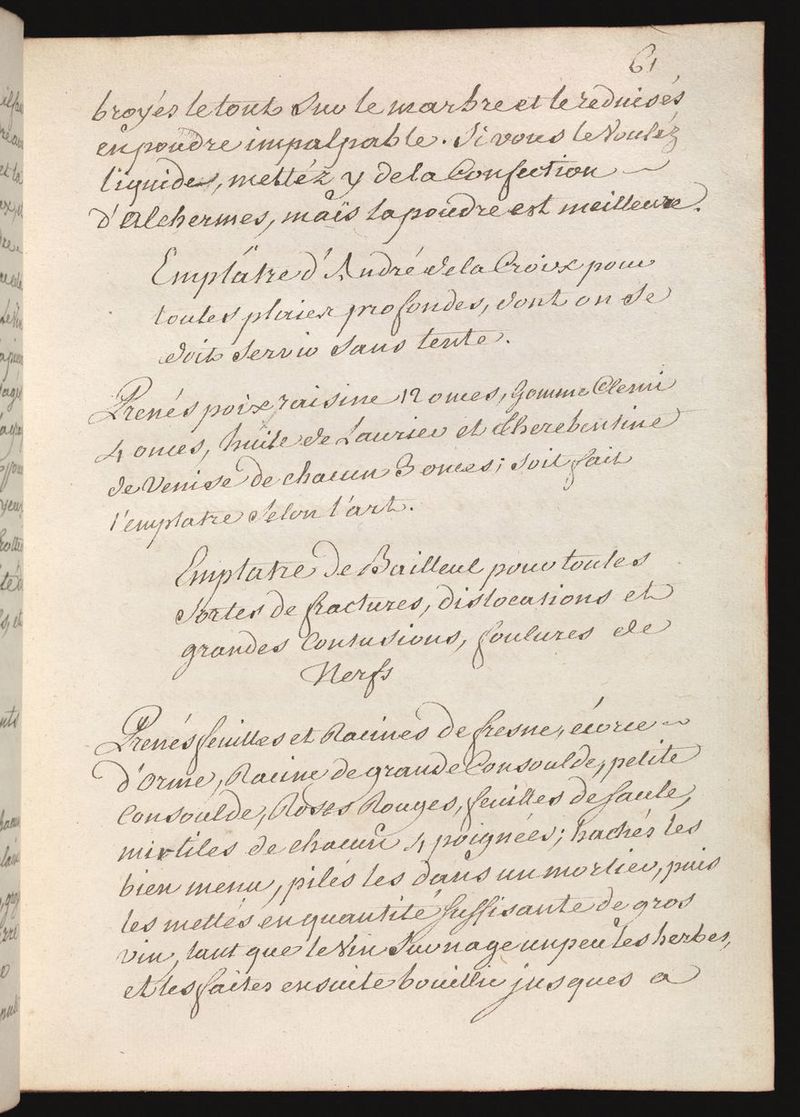 61
broyés le tout sur le marbre et le reduisés
en poudre impalpable. Si vous le Voulés
liquide, mettéz y de la Confection
d'Alchermes, maïs la poudre est meilleure.
Emplâtre d'André de la Croix pour
toutes plaies profondes, dont on se
doit servir sans tente.
Prenés poix raisine 12 onces, Gomme Elemi
4 onces, huile de Laurier et therebentine
de Venise de chacun 3 onces; soit fait
l'emplatre selon l'art.
Emplatre de Bailleul pour toutes
sortes de fractures, dislocations et
grandes Contusions, foulures de
Nerfs
Prenés feuilles et Racines de fresne, écorce
d'Orme, Racine de grande Consoulde, petite
Consoulde, Roses Rouges, feuilles de saule,
mirtiles de chacun 4 poignées; hachés les
bien menu, pilés les dans un mortier, puis
les mettés en quantité suffisante de gros
vin, tant que le Vin surnage un peu les herbes,
et les faites ensuite bouillir jusques a